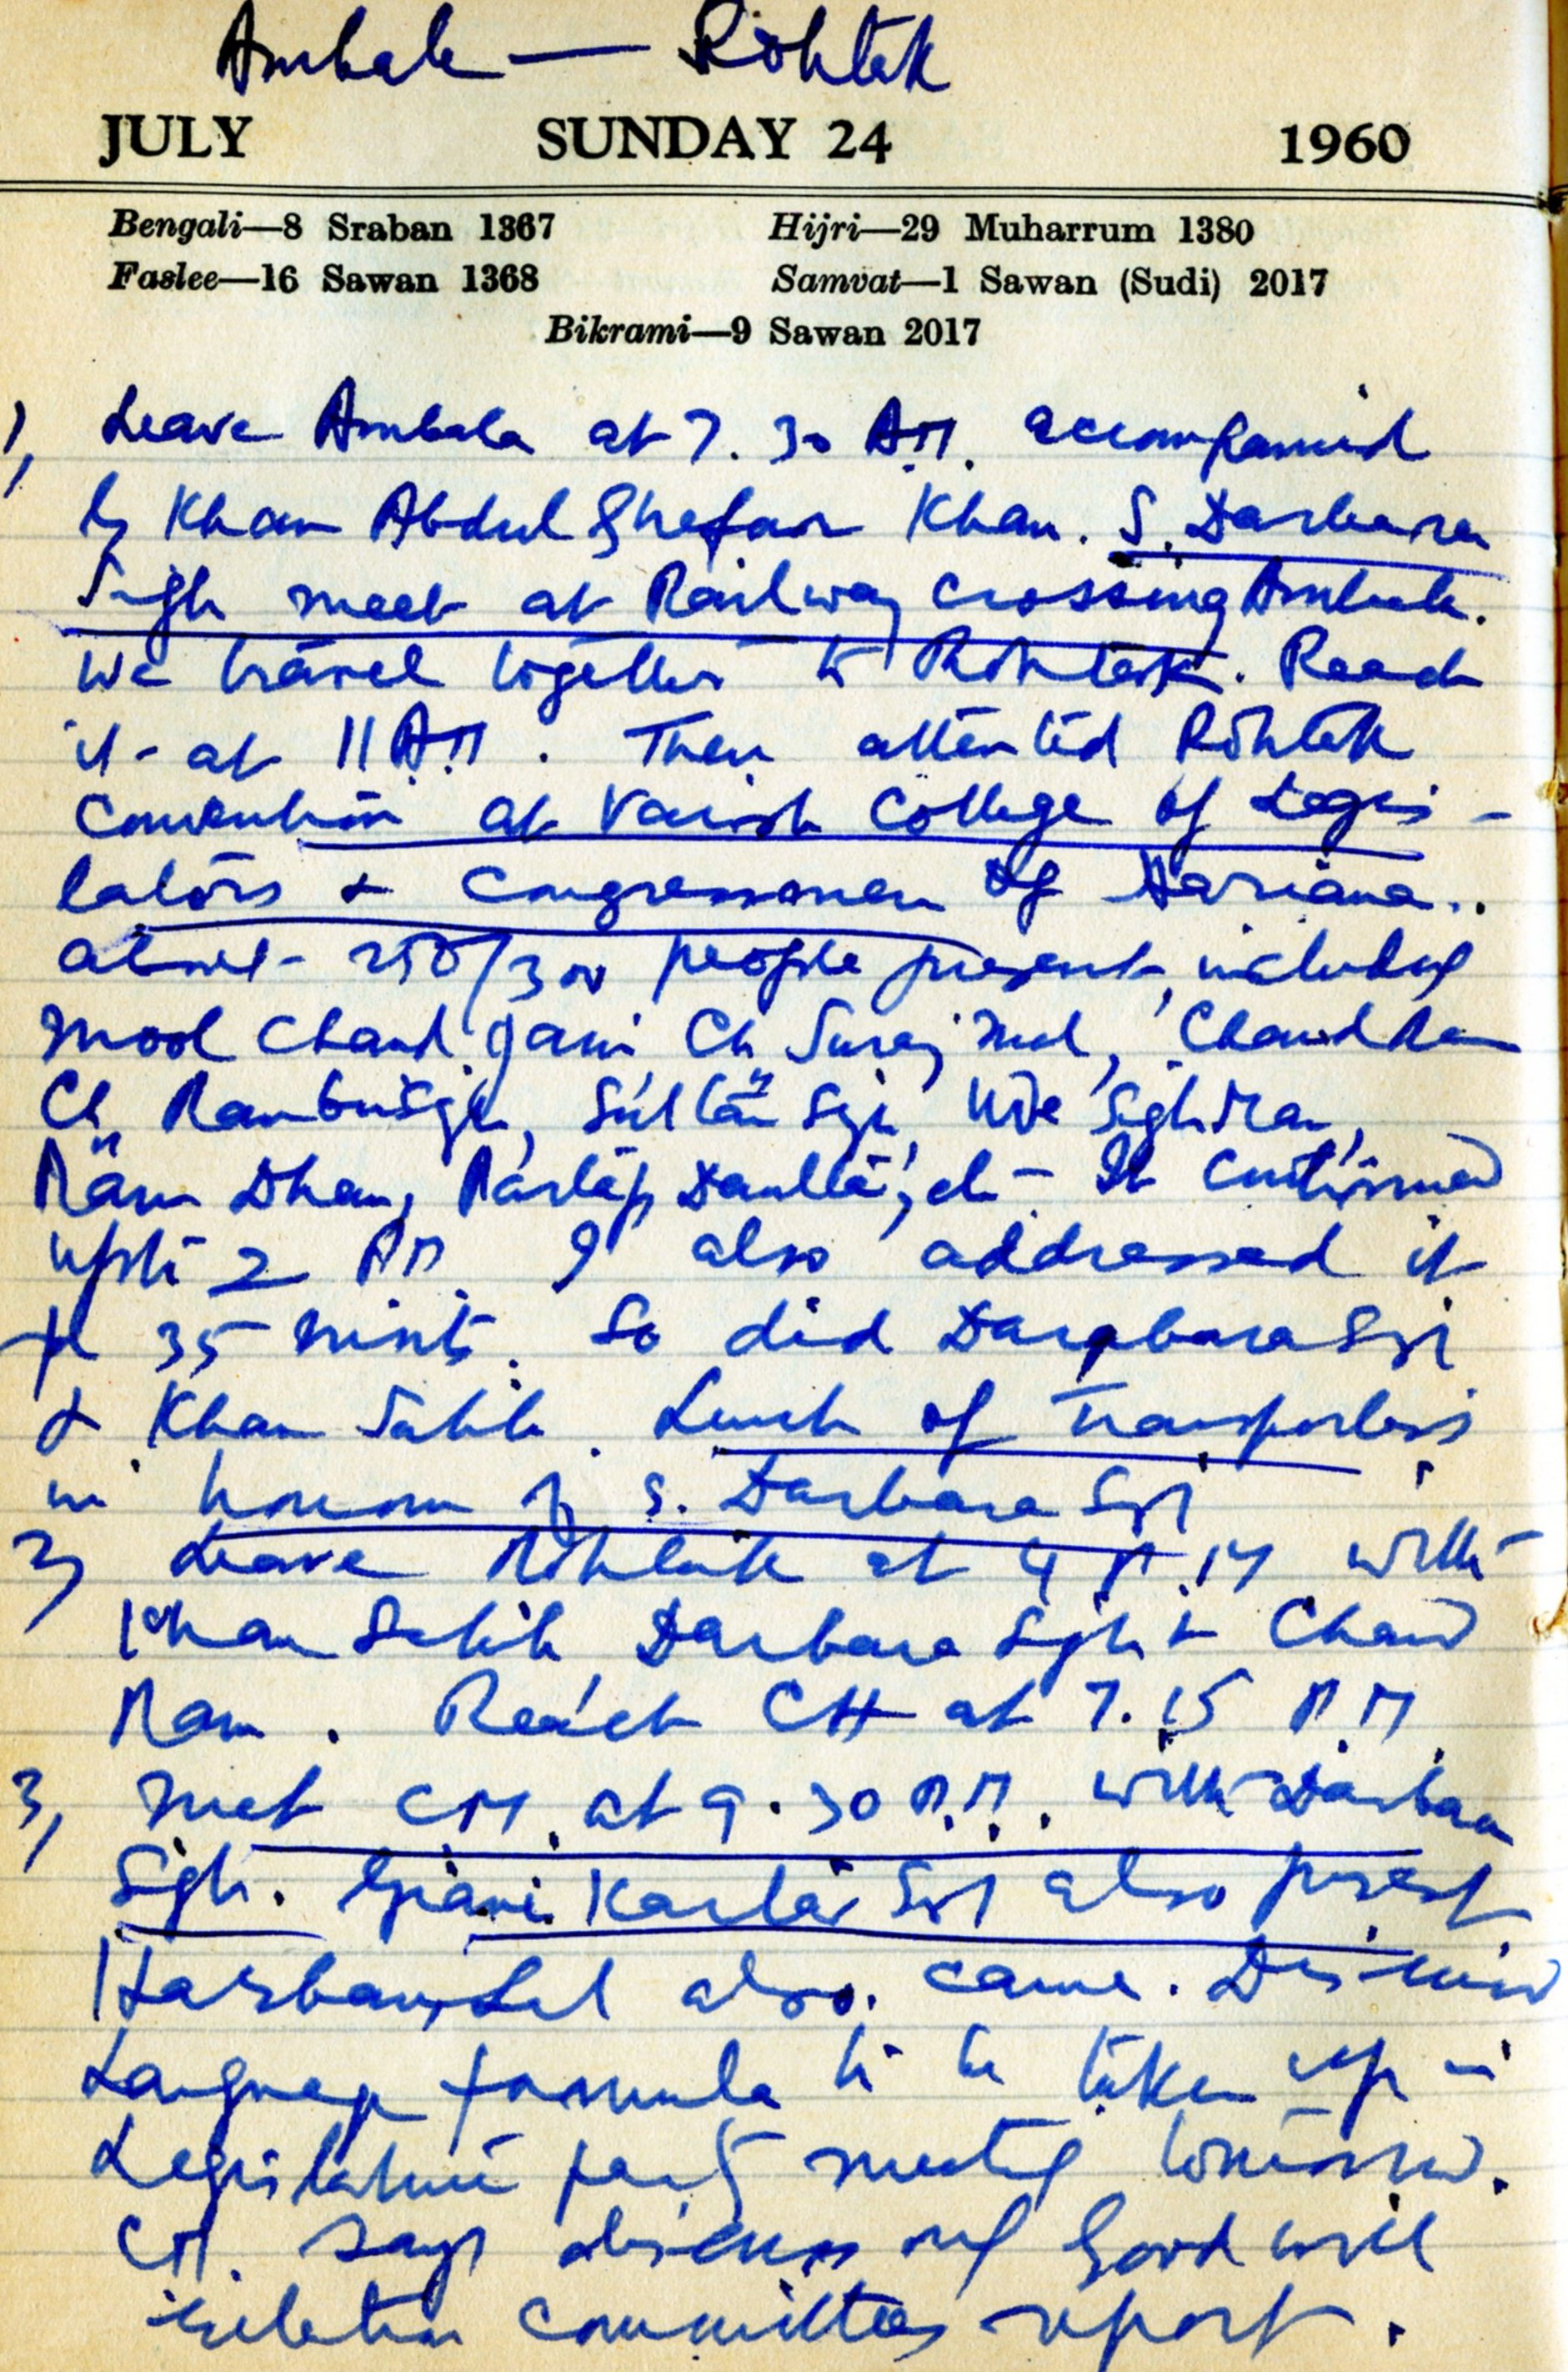 Ambala — Rohtak
JULY SUNDAY 24 1960
Bengali—8 Sraban 1367 Hijri—29 Muharrum 1380
Faslee—16 Sawan 1368 Samvat—1 Sawan (Sudi) 2017
Bikrami—9 Sawan 2017
1, Leave Ambala at 7.30 A.M. accompanied
by Khan Abdul Ghafar Khan. S. Darbara
Sigh meet at Railway crossing Ambala.
We travel together to Rohtak. Reach
it at 11 A.M. Then attended Rohtak
Convention at Vaish College of Legis-
lators & Congressmen of Hariana..
about 250/300 people present, including
Mool Chand Jain Ch Suraj Mal, Chand Ram
Ch Ranbir Sgh, Sultan Sgh,
Ram Dhan, Partap Daulta, etc It continued
upto 2 PM. I also addressed it
for 35 minuts. So did Darabara Sgh
& Khan Sahib. Lunch of Transporters
in honour of S. Darbara Sgh
2, Leave Rohtak at 4 P.M with
Khan Sahib Darbara Sigh & Chand
Ram. Reach CH at 7.15 P.M.
3, Met CM. at 9.30 P.M. with Darbara
Sigh. Giani Kartar Sgh also present
Harbans Lal also came. Discussed
Language formula to be taken up in
Legislature party meeting tomorrow.
CM. says discuss only Good will
relation committees report.